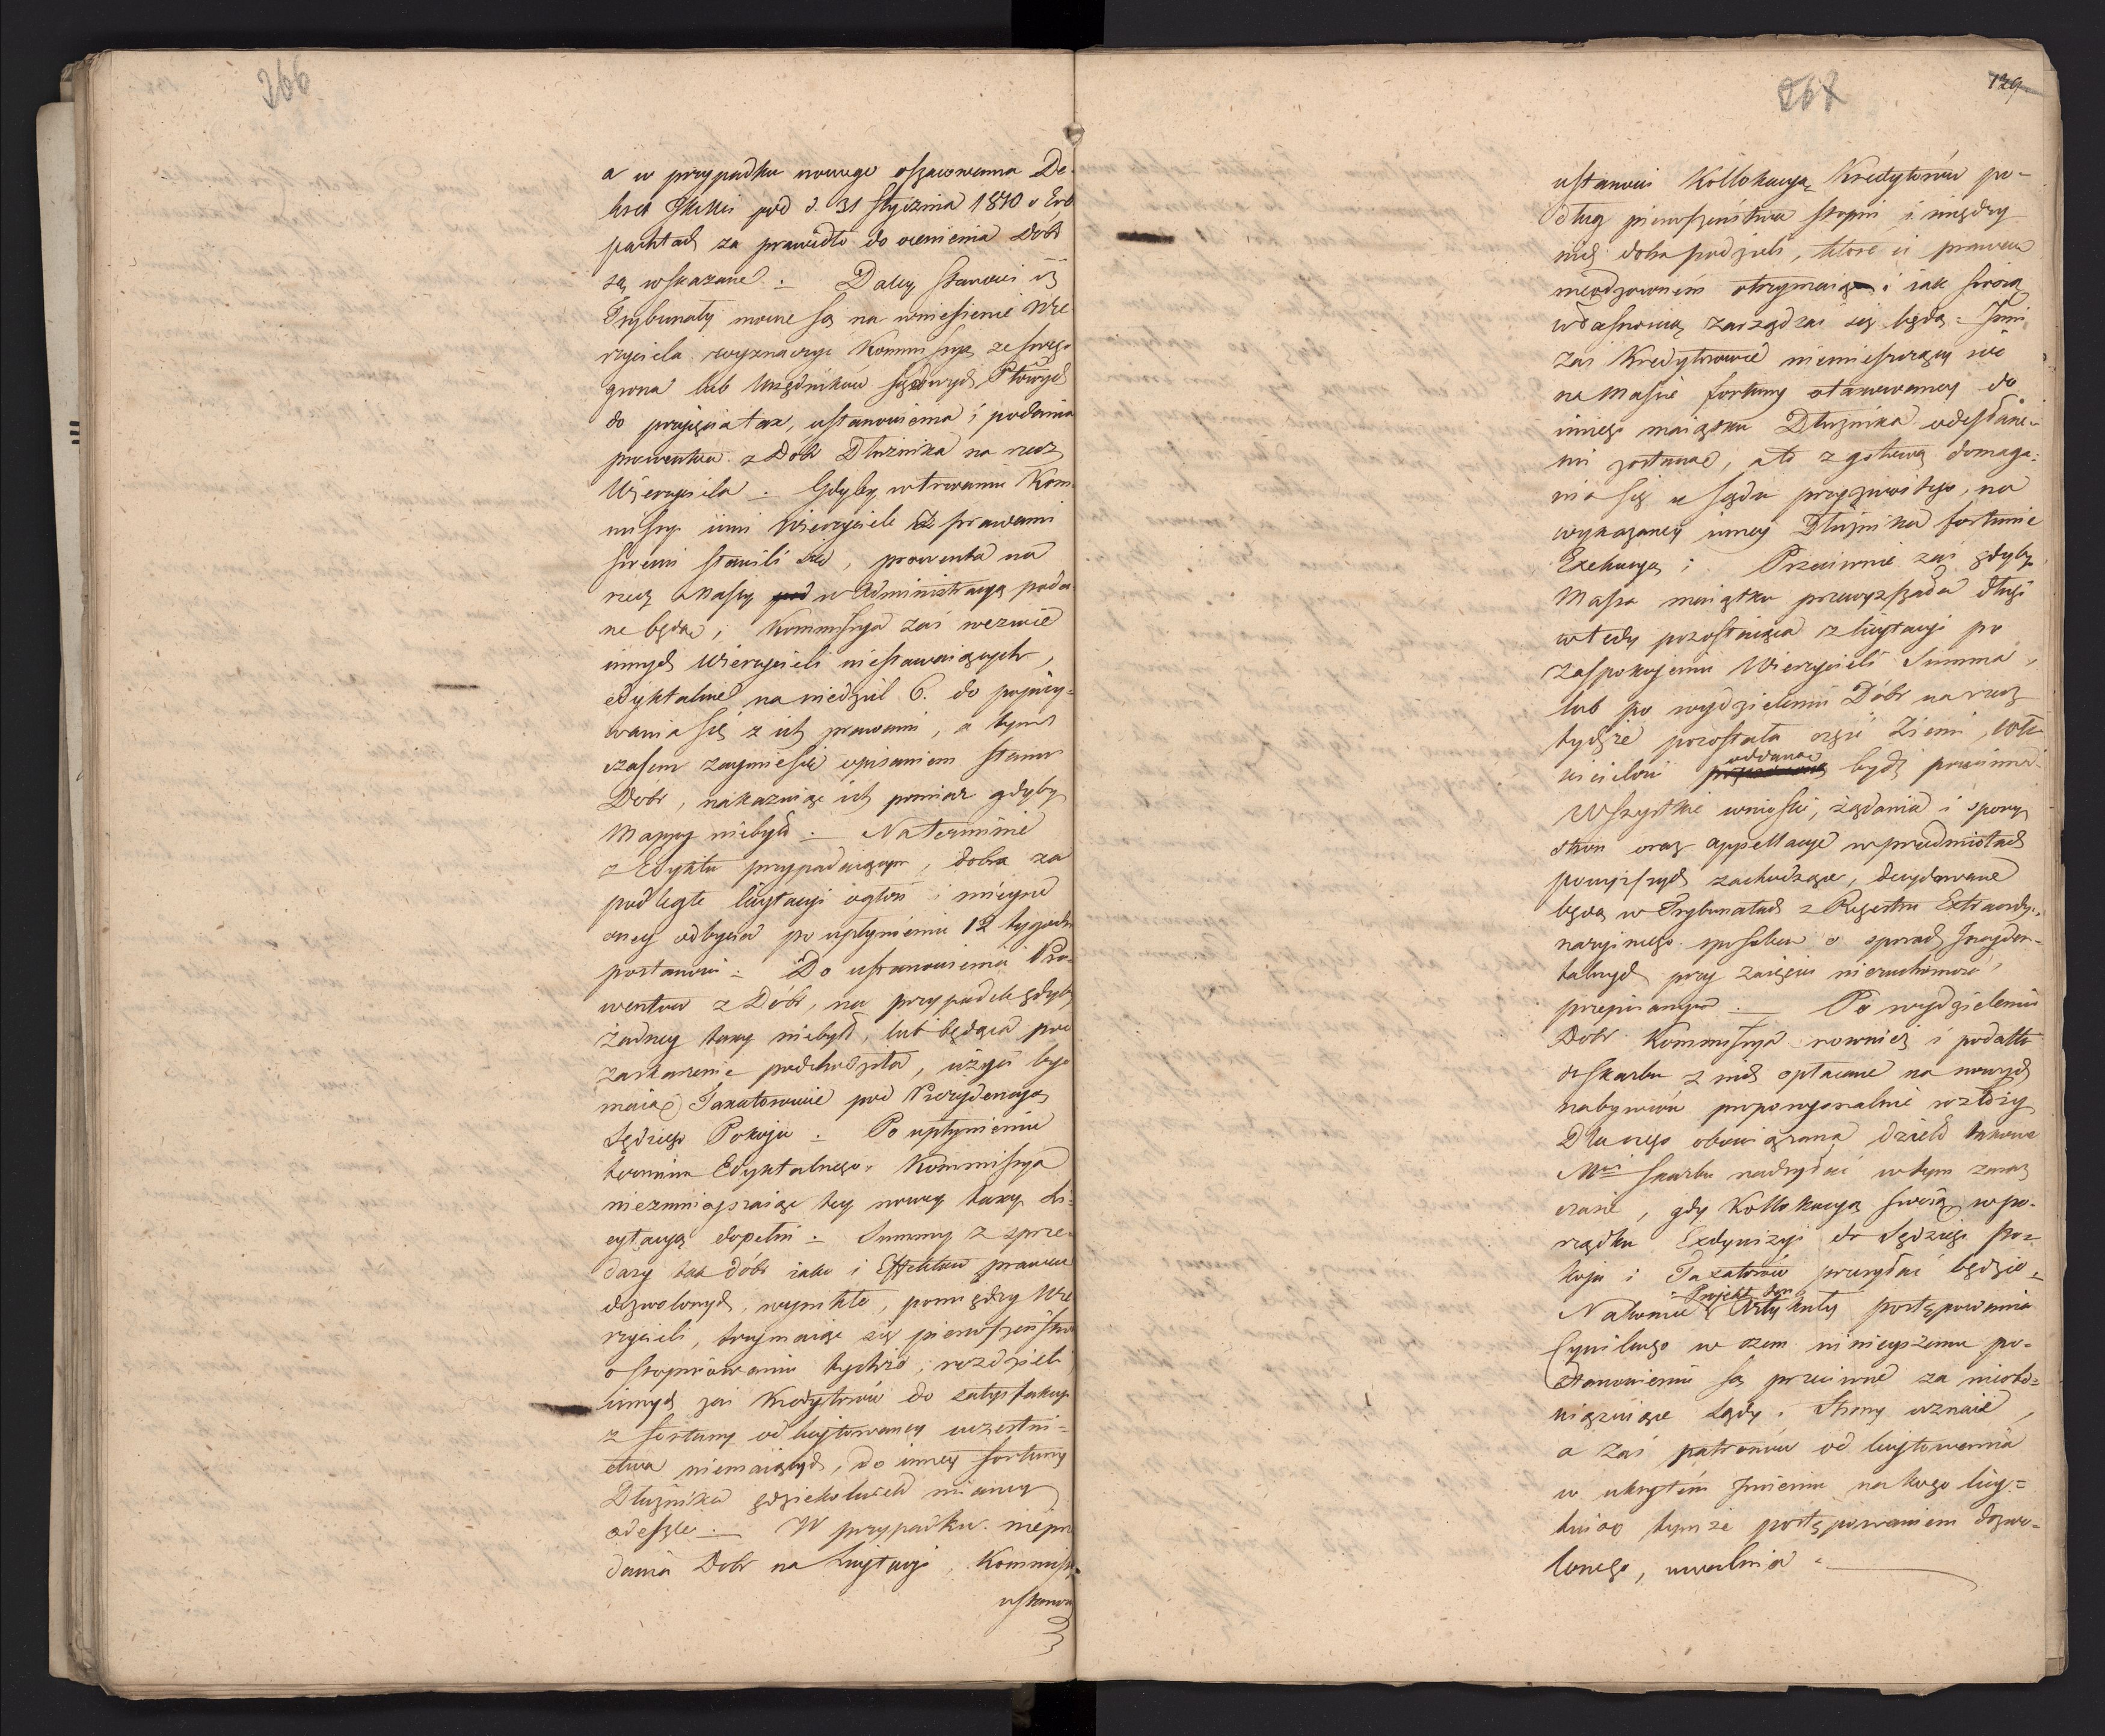 266
a w przypadku nowego oszacowania De-
kret JKMci pod d. 31 Stycznia 1810 o Erb
pachtach za prawidło do ocenienia Dóbr
są wskazane. Daley stanowi iż
Trybunały mocne są na wniesienie Wie
rzyciela wyznaczyć Kommissyą ze swego
grona lub Urzędników sądowych Płowych
do przyjęcia tax, ustanowienia i podania
prowentów z Dóbr Dłużnika na rzecz
Wierzyciela. Gdyby w trwaniu Kom-
missyi inni Wierzyciele ze prawami
swemi stawili się, prowenta na
rzecz Massy pod w Administracyą poda-
ne będą; Kommissya zaś wezwie
innych Wierzycieli niestawaiących,
edyktalnie na niedziel 6. do popisy-
wania się z ich prawami, a tym
czasem zaymie się opisaniem stanu
Dobr, nakazuiąc ich pomiar gdyby
Mappy niebyło. Na terminie
z Edyktu przypadaiącym, dobra za
podległe licytacyi ogłosi i mieysce
oney odbycia po upłynieniu 12 tygodni
postanowi. Do ustanowienia Pro-
wentów z Dóbr, na przypadek gdyby
żadney taxy niebyło, lub będąca pod
zaskarżenie podchodziła, użyci być
maią Taxatorowie pod Prezydencyą
Sędziego Pokoju. Po upłynieniu
terminu Edyktalnego, Kommissya
niezmnieyszaiąc tey nowey taxy li-
cytacyą dopełni. Summy z sprze-
daży tak dóbr iako i Effektów prawem
dozwolonych, wynikłe, pomiędzy Wie
rzycieli, trzymaiąc się pierwszeństwa
o stopniowaniu tychże, rozdzieli
innych zaś Kredytorów do satysfakcyi
z fortuny od licytowaney uczestni-
ctwa niemaiących, do inney fortuny
Dłużnika gdziekolwiek mianey
odeszle. W przypadku nieprze
dania Dobr na Licytacyi, Kommissya
ustanowi
267
129
ustanowi Kollokacyą Kredytorów po-
dług pierwszeństwa stopni i między
nich dobra podzieli, które ci prawem
nieodzownem otrzymaią i iak swoią
własnością zarządzać się będą. Inni
zaś Kredytorowie niemieszczący się
na Massie fortuny otaxowaney do
innego maiątku Dłużnika odesłane-
mi zostaną, a to z gotową domaga-
nia się u sądu przyzwoitego, na
wykazaney inney Dłużnika fortunie
Exekucyą; Przeciwnie zaś gdyby
Massa maiątku przewyższała długi
wtedy pozostaiąca z licytacyi po
zaspokojeniu Wierzycieli Summa,
lub po wydzieleniu Dóbr na rzecz
tychże pozostała część Ziemi, Wła-
oddana
ścicielowi być powinna.
Wszystkie wnioski, żądania i spory
stron oraz appellacye w przedmiotach
powyższych zachodzące, decydowane
będą w Trybunałach z Regestru Extraordy-
naryinego sposobem o sporach Incyden-
talnych przy zaięciu nieruchomości,
przepisanym. Po wydzieleniu
Dóbr Kommissya rownież i podatki
do skarbu z nich opłacane na nowych
nabywców proporcyonalnie rozłoży
Dla czego obowiązana dzieło takowe
Mtwi Skarbu nadsyłać w tym zaraz
czasie, gdy Kollokacyą swoią w po-
rządku Exdywizyi do Sędziego Po-
koju i Taxatorów przesyłać będzie.
Projekt ten
Nakoniec Artykuły postępowania
Cywilnego w czem ninieyszemu po-
stanowieniu są przeciwne za nieobo-
wiązuiące Sądy i Strony uznaie,
a zaś patronów od licytowania
w ukrytem Imieniu na kogo licy-
tuiąc tymże postępowaniem dozwo-
lonego, uwalnia.